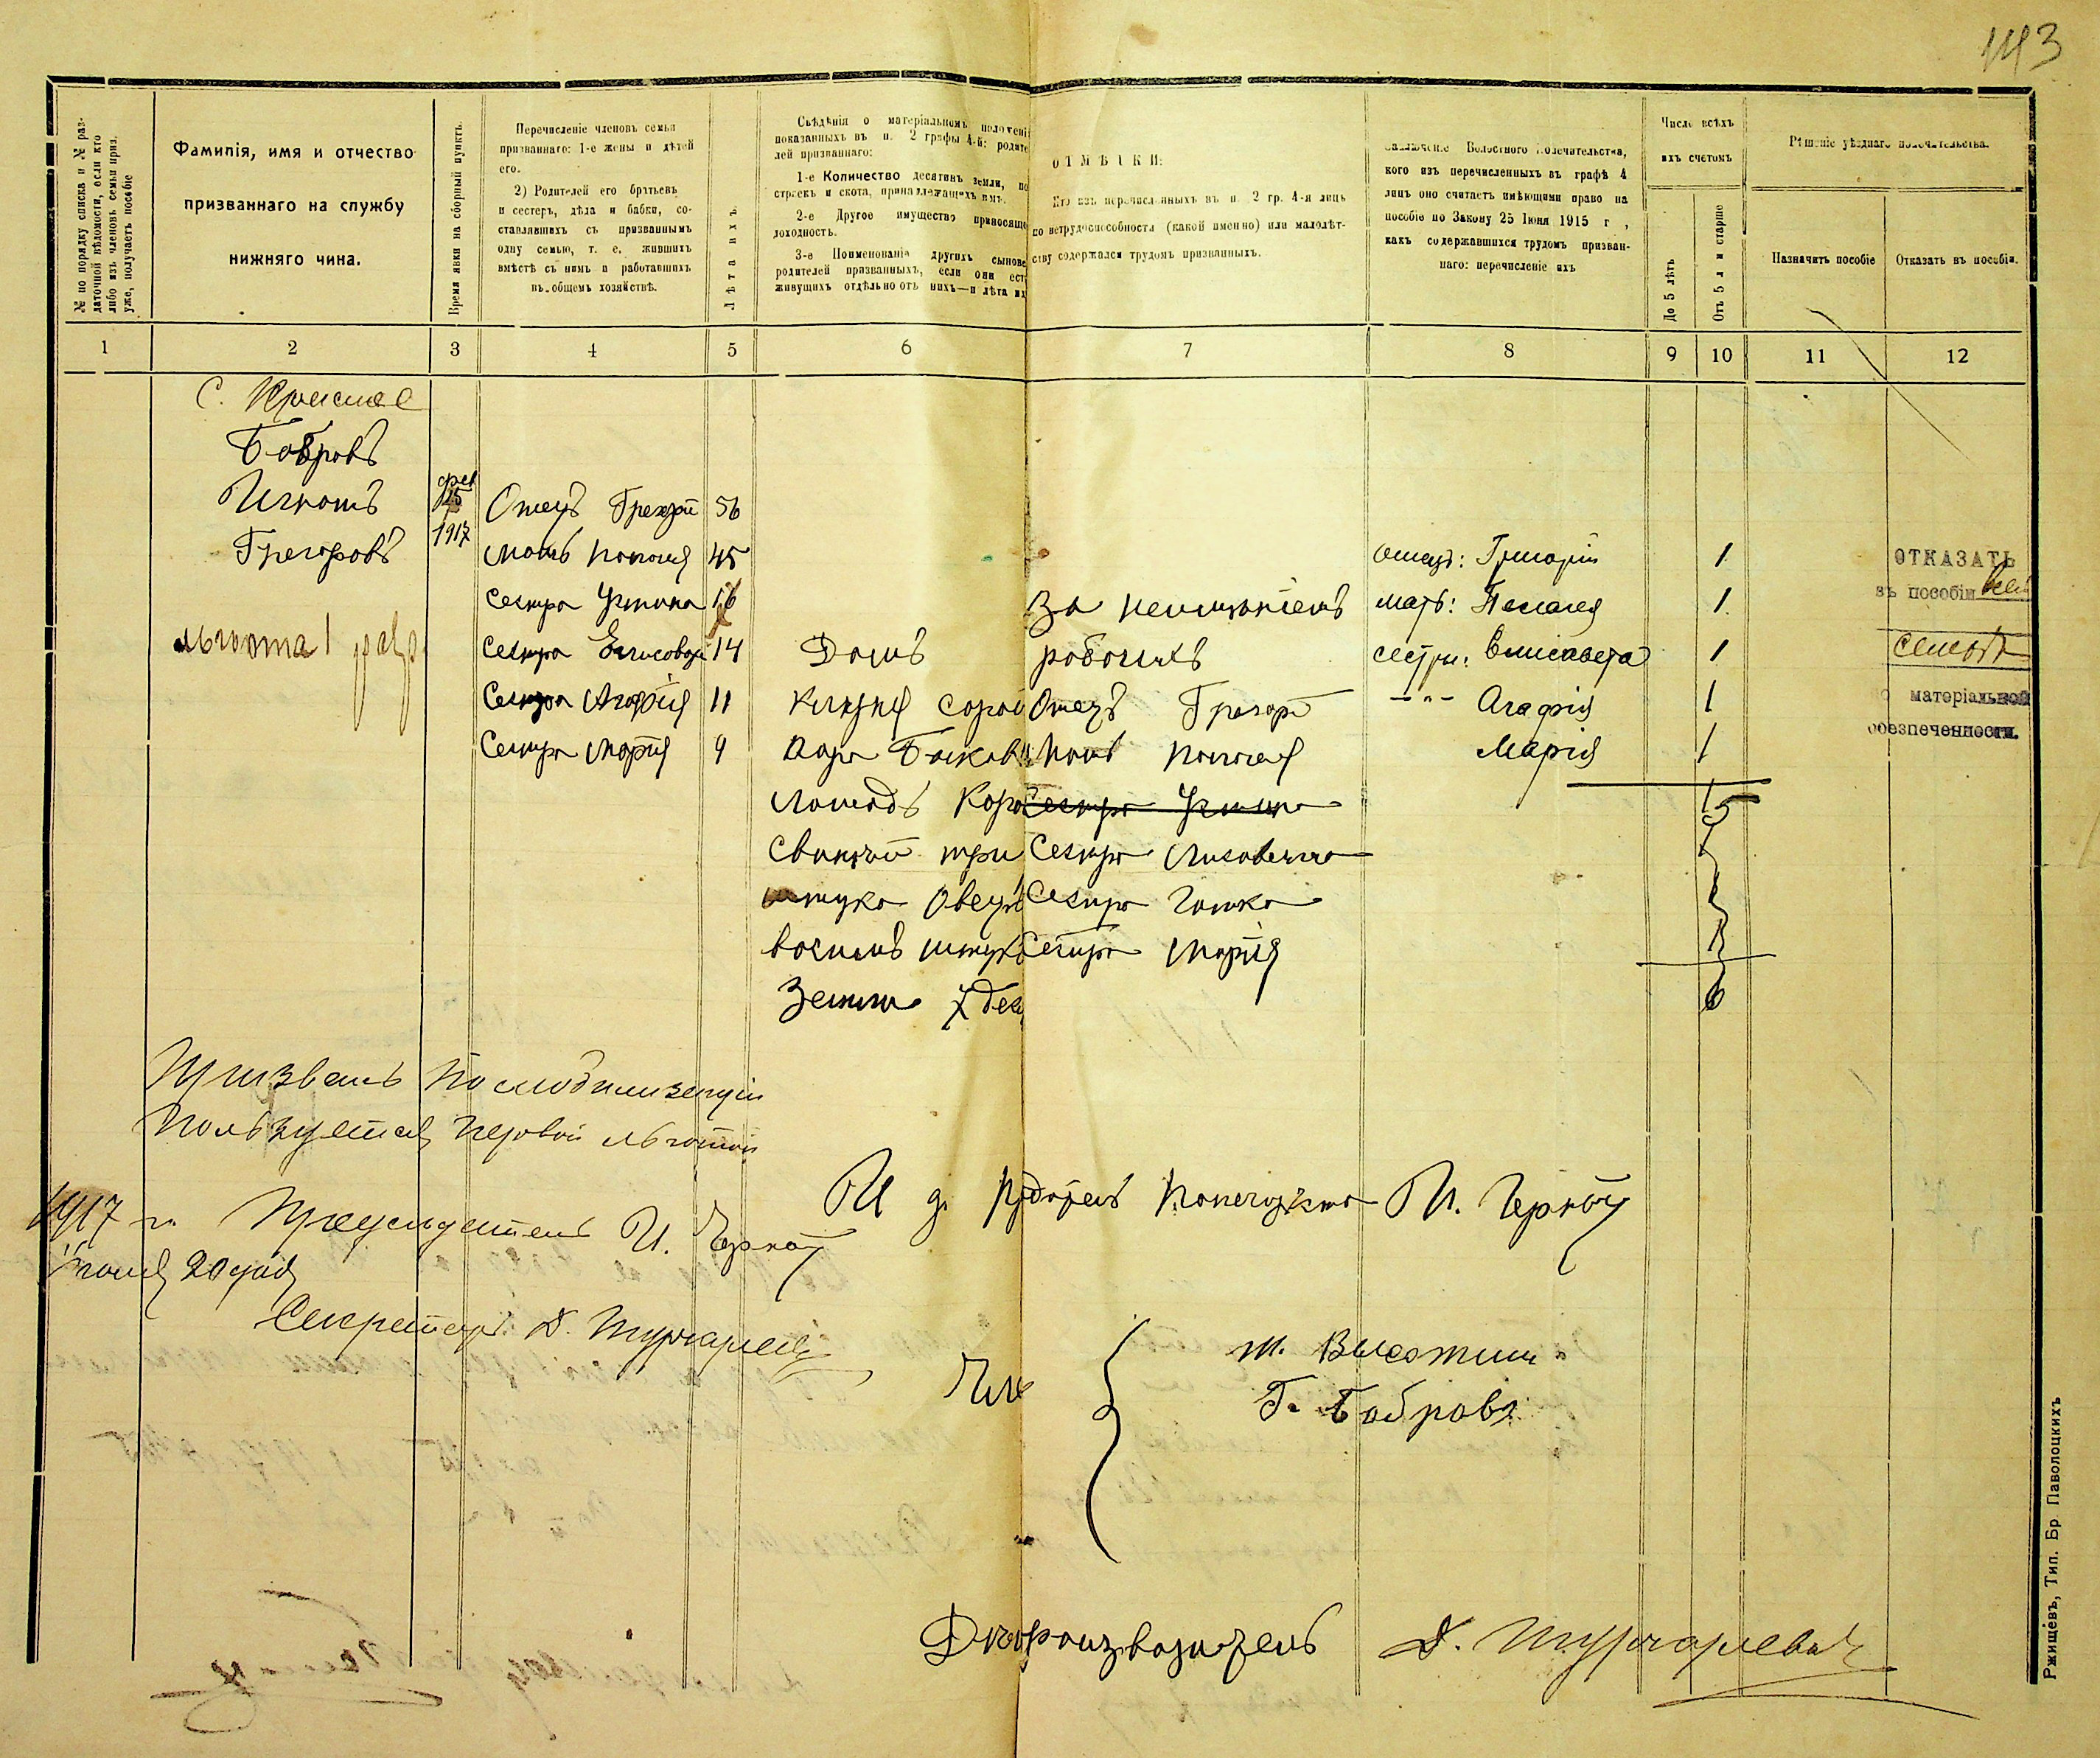 143
№ по порядку списка и № раз-
даточной вѣдомости, если кто
либо изъ членовъ семьи приз.
уже, получаетъ пособіе
Фамилія, имя и отчество
призваннаго на службу
нижняго чина.
Время явки на сборный пунктъ.
Перечисленіе членовъ семьи
призваннаго: 1-е жены и дѣтей
его.
2) Родителей его братьевъ
и сестеръ, дѣда и бабки, со-
ставлявшихъ съ призваннымъ
одну семью, т. е. жившихъ
вмѣстѣ съ нимъ и работавшихъ
въ общемъ хозяйствѣ.
Лѣта ихъ
Свѣдѣнія о матеріальномъ положені
показанныхъ въ п. 2 графы 4-й: родите
лей призваннаго:
1-е Количество десятинъ земли, по
строекъ и скота, принадлежащихъ имъ.
2-е Другое имущество приносяще
доходность.
3-е Поименованіе другихъ сынове
родителей призванныхъ, если они ест
живущихъ отдѣльно отъ нихъ—и лѣта их
ОТМѢТКИ:
Кто изъ перечисленныхъ въ п. 2 гр. 4-я лицъ
по нетрудоспособности (какой именно) или малолѣт-
ству содержался трудомъ призванныхъ.
Заключеніе Волостного Попечительства,
кого изъ перечисленныхъ въ графѣ 4
лицъ оно считаетъ имѣющими право на
пособіе по Закону 25 Іюня 1915 г,
какъ содержавшихся трудомъ призван-
наго: перечисленіе ихъ
Число всѣхъ
ихъ счетомъ
До 5 лѣтъ
Отъ 5 л и старше
Рѣшеніе уѣзднаго попечительства.
Назначить пособіе
Отказать въ пособіи.
1 2 3 4 5 6 7 8 9 10 11 12
С.
Бобровъ
Игнатъ
Грегоровъ
льгота 1 разр.
фев
25
1917
Отецъ Грегори 56
мать Палагея 45
Сестра Устина 16
Сестра 14
Сестра Агафія 11
Сестра Марія 9
Домъ
Клуня Сарай
лошадь Коро
Свиней три
штуки Овецъ
восимь штукъ
Земли 7 дес
За неимѣніемъ
рабочихъ
Отецъ Грегори
Мать Палагея
Сестра Устина
Сестра Лизавета
Сестра Гашка
Сестра Марія
отецъ: Григорій 1
мать: Пелагея 1
сестры: Елисавета 1
–"– Агафія 1
Марія 1
5
6
ОТКАЗАТЬ
въ пособіи всей
семьѣ
по матеріальной
обезпеченности.
Призванъ по мобилизаціи
Пользуется первой льготой
1917 г. Предсидатель И. Черной
20 дня
Секретарь Д.
И д. Попечит И. Черной
Чле
Г. Бобровъ
Дѣлопроизводитель Д.
Ржищевъ, Тип. Бр Паволоцкихъ